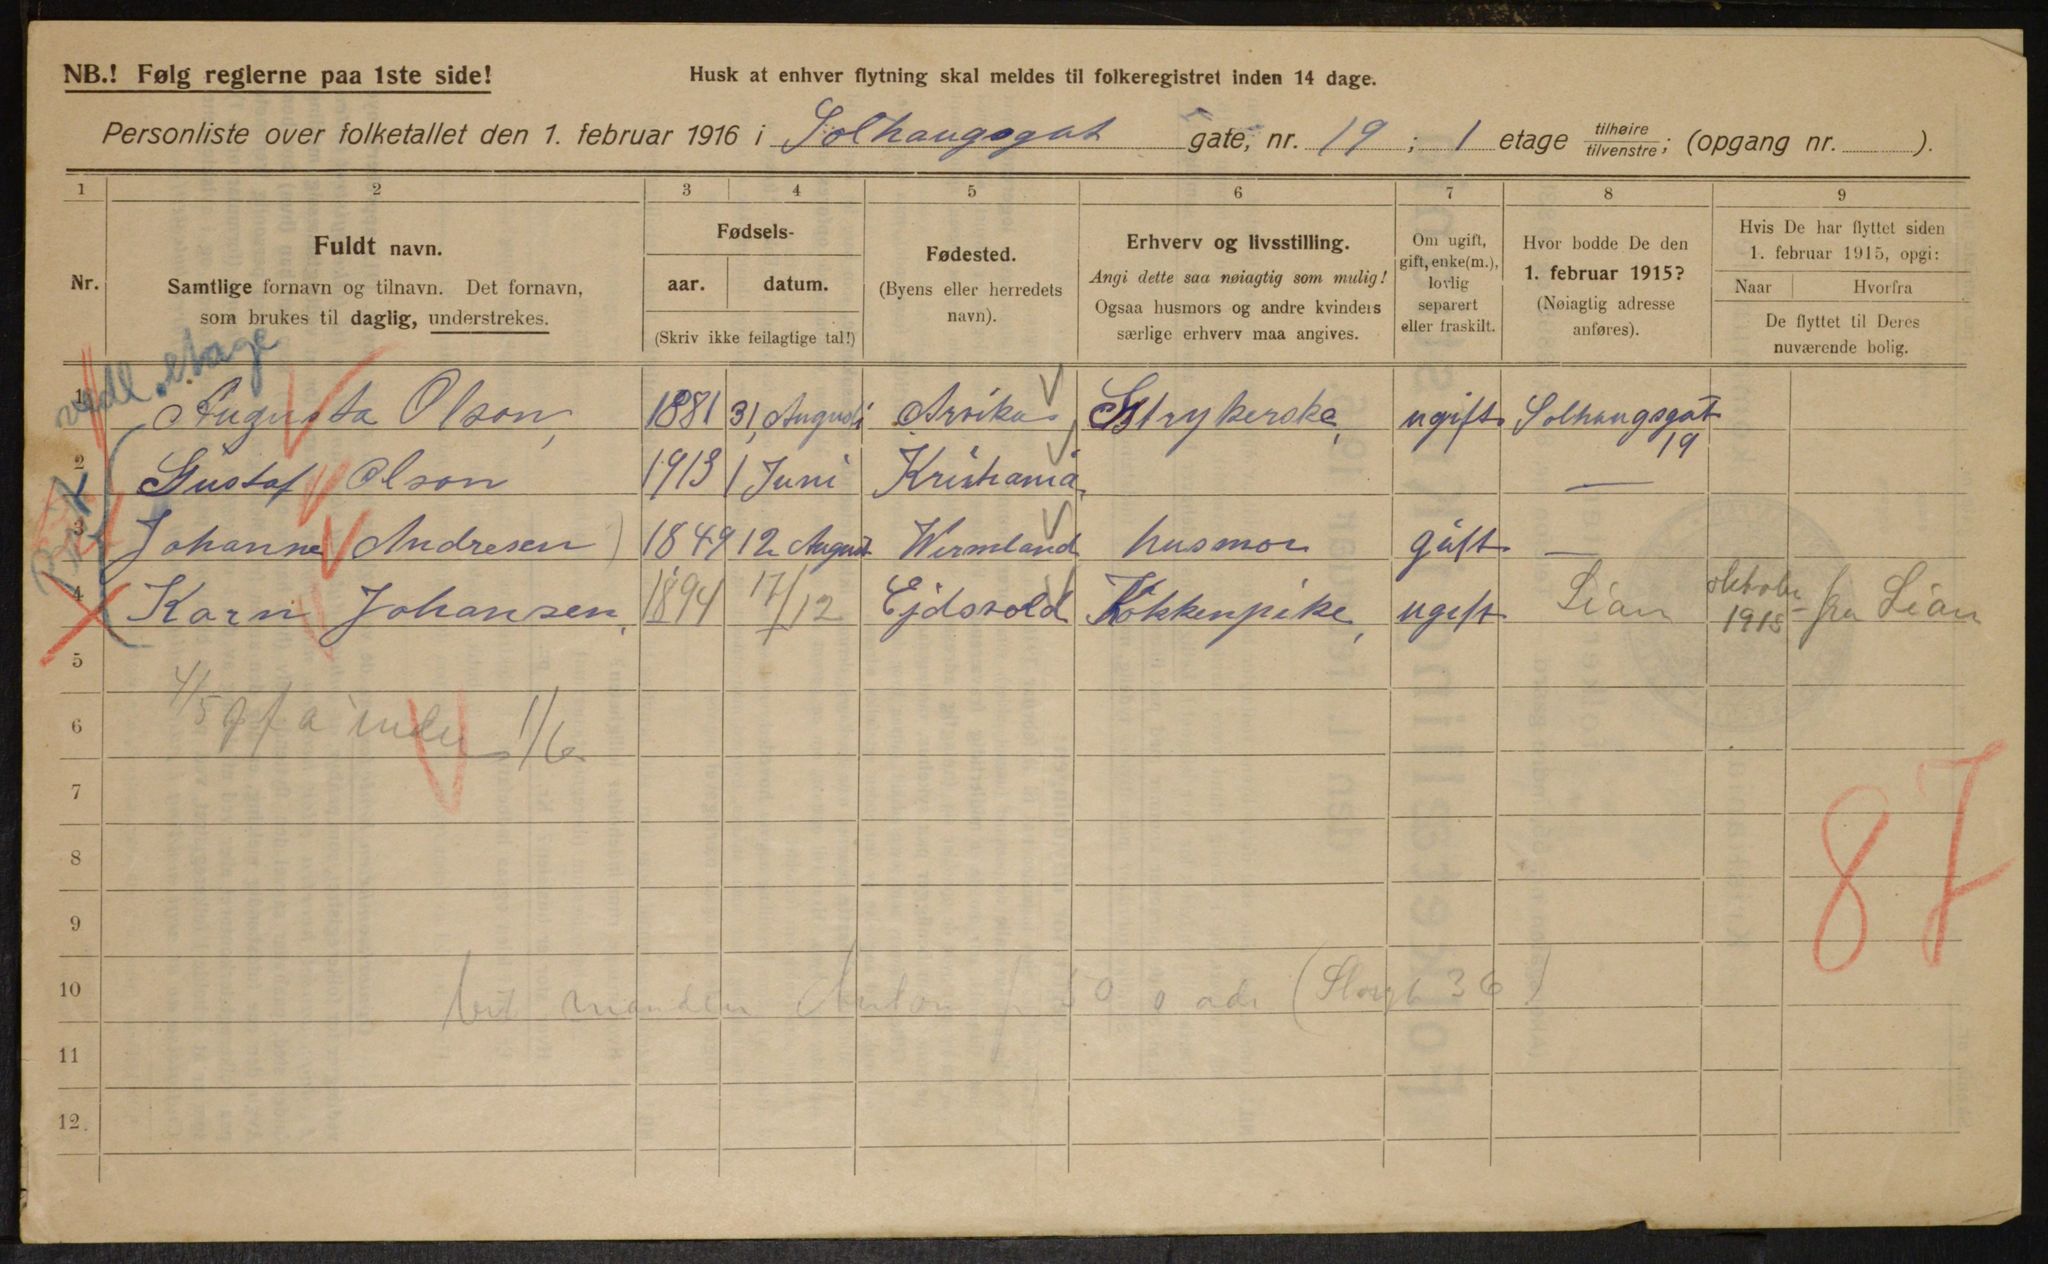 NB.! Følg reglerne paa 1ste side!
Husk at enhver flytning skal meldes til folkeregistret inden 14 dage.
Personliste over folketallet den 1. februar 1916 i Solhaugsgat gate, nr. 19 ; 1 etage tilhøire/tilvenstre; (opgang nr. ).
1 2 3 4 5 6 7 8 9
Nr.
Fuldt navn.
Samtlige fornavn og tilnavn. Det fornavn,
som brukes til daglig, understrekes.
Fødsels-
aar. datum.
(Skriv ikke feilagtige tal!)
Fødested.
(Byens eller herredets
navn).
Erhverv og livsstilling.
Angi dette saa nøiagtig som mulig!
Ogsaa husmors og andre kvinders
særlige erhverv maa angives.
Om ugift,
gift, enke(m.),
lovlig
separert
eller fraskilt.
Hvor bodde De den
1. februar 1915?
(Nøiagtig adresse
anføres).
Hvis De har flyttet siden
1. februar 1915, opgi:
Naar Hvorfra
De flyttet til Deres
nuværende bolig.
vedl. etage
1 Augusta Olson, 1881 31, Augusti Arvika Strykerske, ugift Solhaugsgat 19
2 Gustaf Olson 1913 1 Juni Kristiania —
3 Johanne Andresen) 1849 12 August Wermland husmor gift —
4 Karn Johansen, 1894 17/12 Ejdsvold Kokkenpike, ugift Lian oktober 1915 fra Lian
5
4/5 1/6
6
7
87
8
9
10 manden Anton
11
12